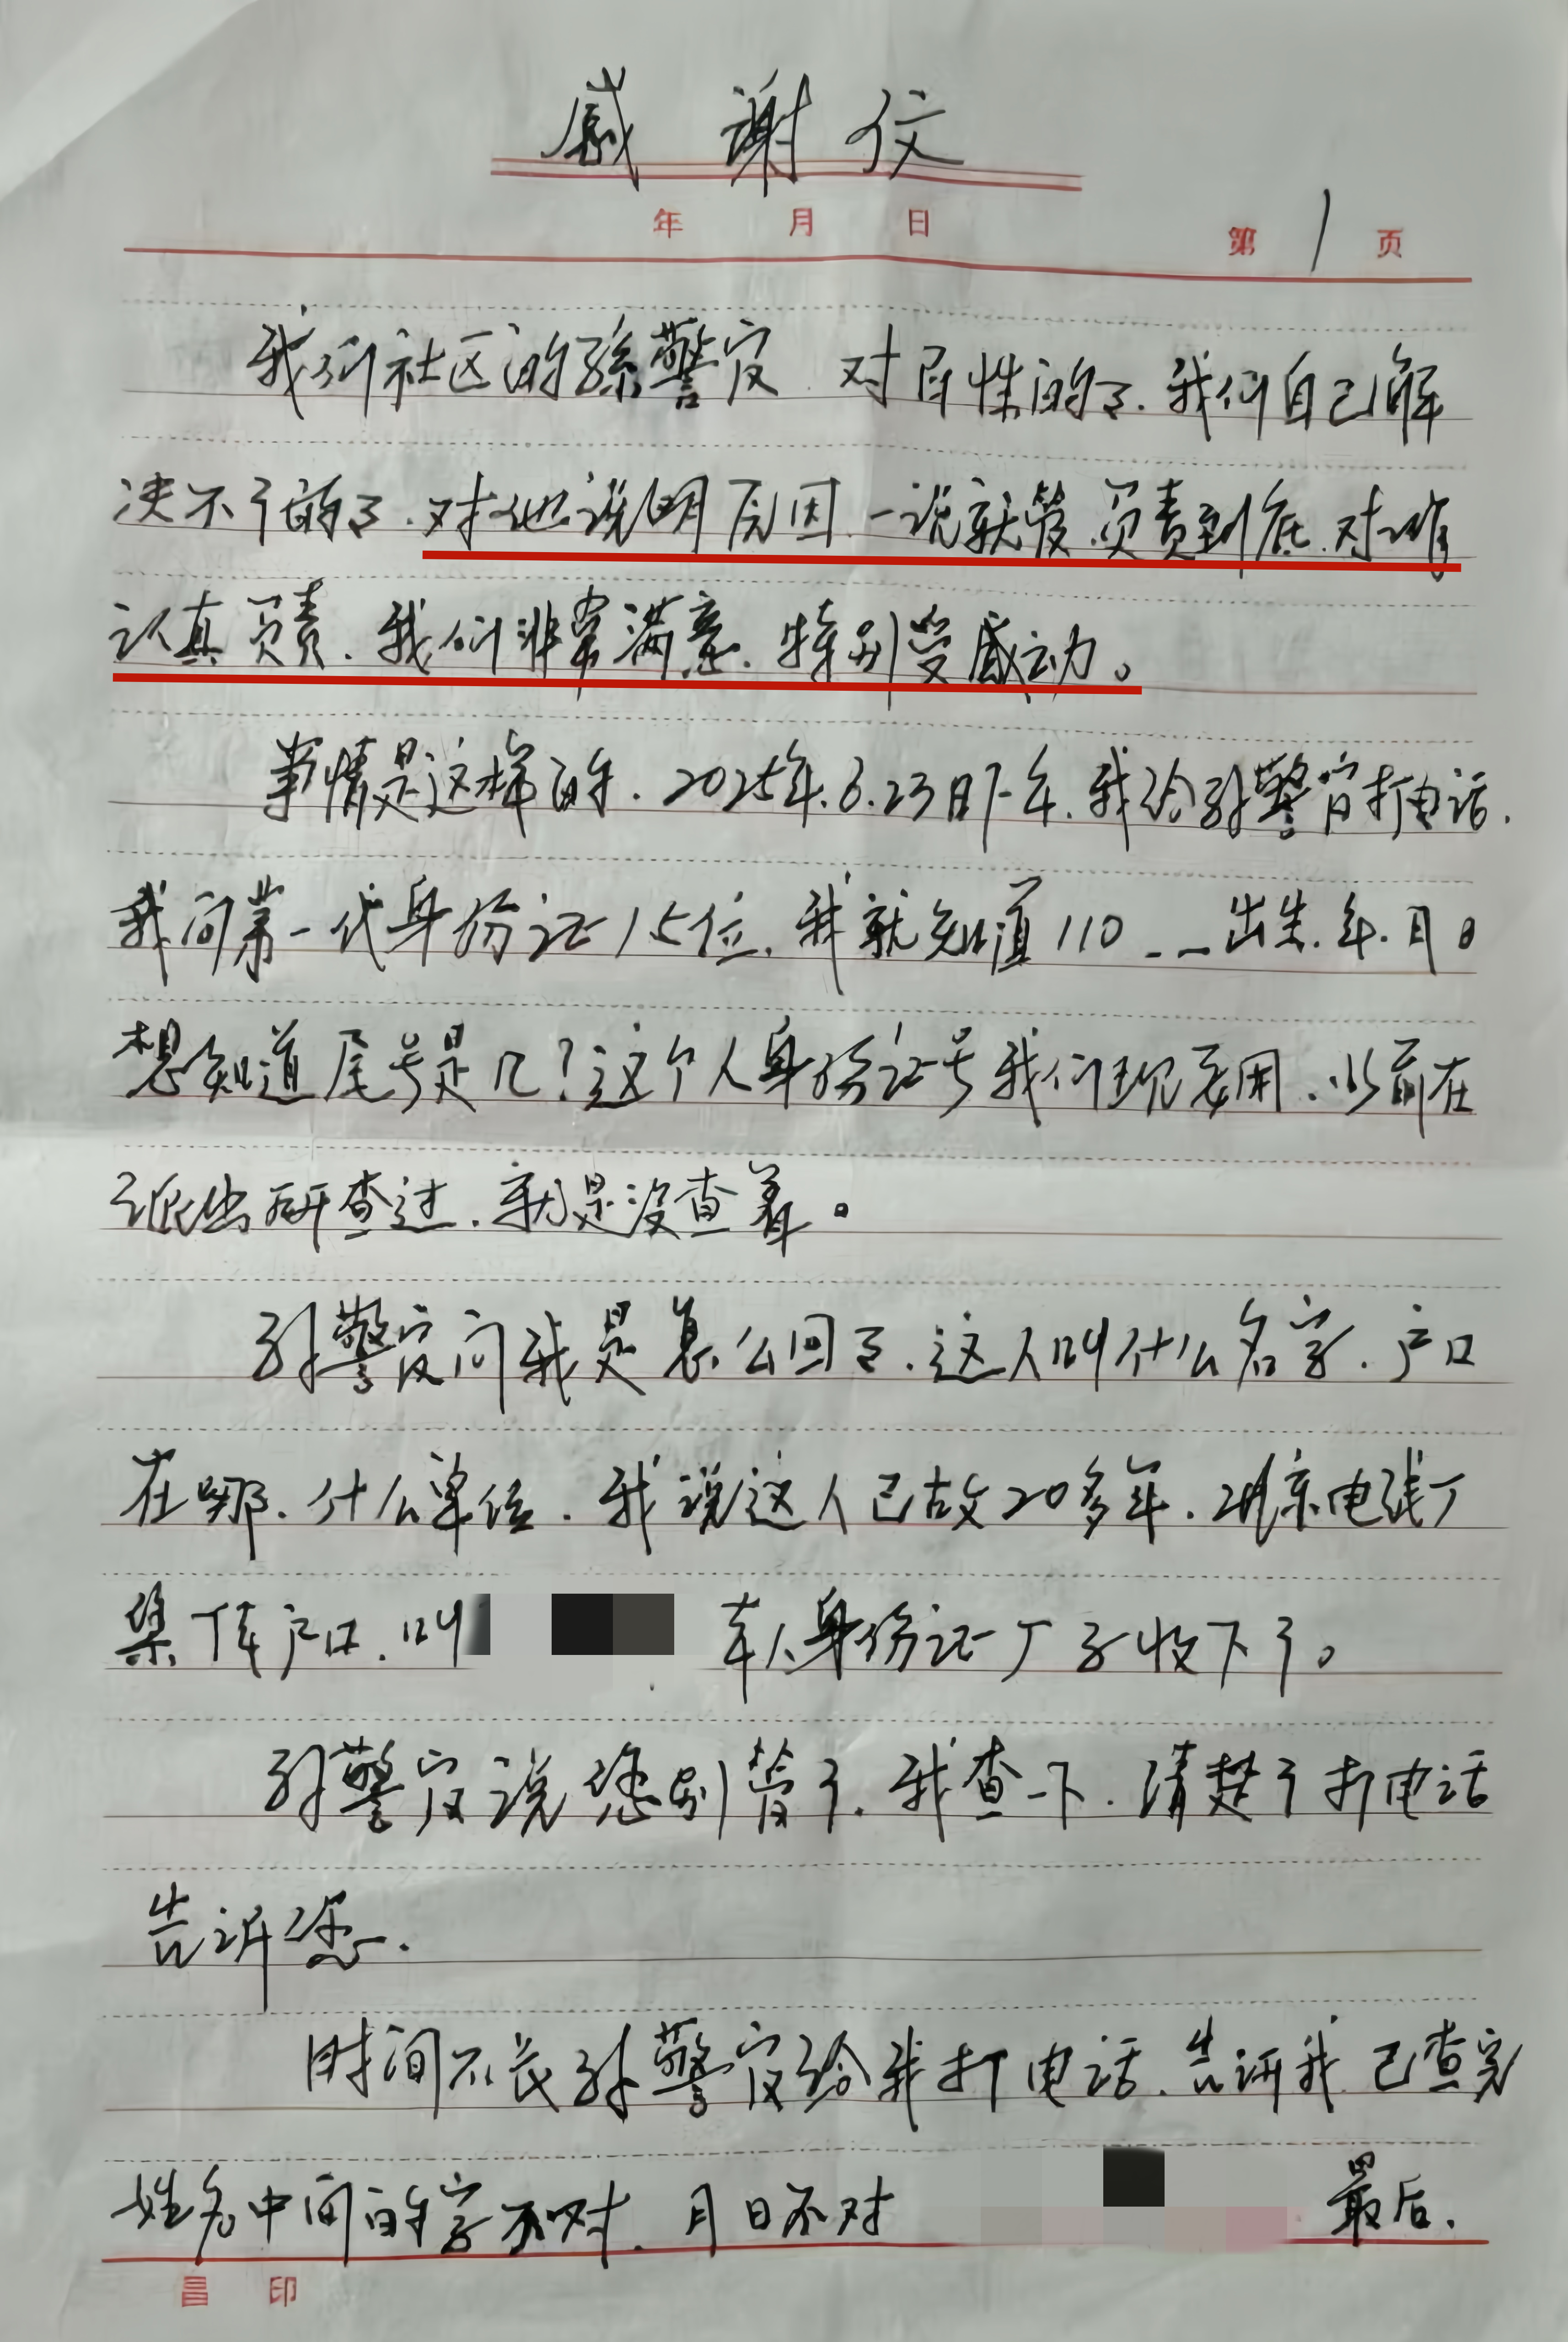 感谢信
年 月 日
第 1 页
我们社区的孙警官.对百姓的事.我们自己解
决不了的事.对他说明原因.一说就管.负责到底.对谁
认真负责.我们非常满意.特别受感动。
事情是这样的.2025年.6.23日下午.我给孙警官打电话.
我问第一代身份证15位.我就知道110_ _ _出生.年.月日
想知道尾号是几?这个人身份证号我们现要用.以前在
派出所查过.就是没查着。
孙警官问我是怎么回事.这人叫什么名字.户口
在哪.什么单位.我说这人已故20多年.北京电线厂
集体户口.叫 本人身份证厂子收下了。
孙警官说您别管了.我查一下.清楚了打电话
告诉您.
时间不长孙警官给我打电话.告诉我.已查完
姓名中间的字不对.月日不对 最后.
昌 印